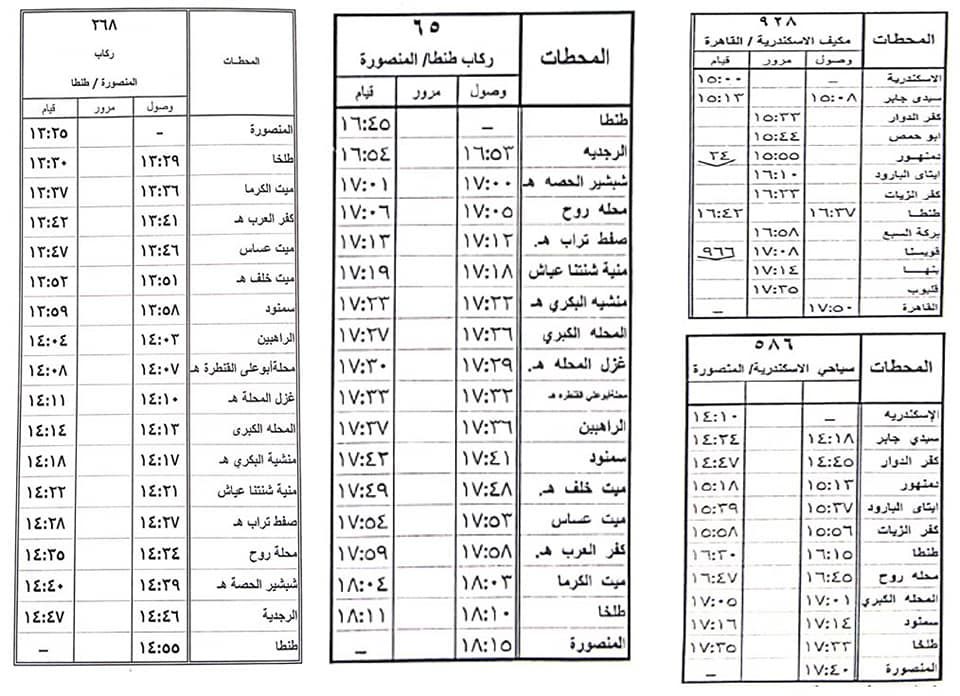 ٢٦٨
ركاب
المنصورة / طنطا
المحطات
وصول مرور قيام
المنصورة – ١٣:٢٥
طلخا ١٣:٢٩ ١٣:٣٠
ميت الكرما ١٣:٣٦ ١٣:٣٧
كفر العرب هـ ١٣:٤١ ١٣:٤٢
ميت عساس ١٣:٤٦ ١٣:٤٧
ميت خلف هـ ١٣:٥١ ١٣:٥٢
سمنود ١٣:٥٨ ١٣:٥٩
الراهبين ١٤:٠٣ ١٤:٠٤
محلة أبوعلى القنطرة هـ ١٤:٠٧ ١٤:٠٨
غزل المحلة هـ ١٤:١٠ ١٤:١١
المحله الكبرى ١٤:١٣ ١٤:١٤
منشية البكري هـ ١٤:١٧ ١٤:١٨
منية شنتنا عياش ١٤:٢١ ١٤:٢٢
صفط تراب هـ ١٤:٢٧ ١٤:٢٨
محلة روح ١٤:٣٤ ١٤:٣٥
شبشير الحصة هـ ١٤:٣٩ ١٤:٤٠
الرجدية ١٤:٤٦ ١٤:٤٧
طنطا ١٤:٥٥ –
٦٥
ركاب طنطا/ المنصورة
المحطات
وصول مرور قيام
طنطا – ١٦:٤٥
الرجديه ١٦:٥٣ ١٦:٥٤
شبشير الحصه هـ ١٧:٠٠ ١٧:٠١
محله روح ١٧:٠٥ ١٧:٠٦
صفط تراب هـ. ١٧:١٢ ١٧:١٣
منية شنتنا عياش ١٧:١٨ ١٧:١٩
منشيه البكري هـ ١٧:٢٢ ١٧:٢٣
المحله الكبري ١٧:٢٦ ١٧:٢٧
غزل المحله هـ. ١٧:٢٩ ١٧:٣٠
محلةابوعلي القنطره هـ ١٧:٣٢ ١٧:٣٣
الراهبين ١٧:٣٦ ١٧:٣٧
سمنود ١٧:٤١ ١٧:٤٢
ميت خلف هـ. ١٧:٤٨ ١٧:٤٩
ميت عساس ١٧:٥٣ ١٧:٥٤
كفر العرب هـ. ١٧:٥٨ ١٧:٥٩
ميت الكرما ١٨:٠٣ ١٨:٠٤
طلخا ١٨:١٠ ١٨:١١
المنصورة ١٨:١٥ –
٩٢٨
مكيف الاسكندرية / القاهرة
المحطات
وصول مرور قيام
الاسكندرية – ١٥:٠٠
سيدى جابر ١٥:٠٨ ١٥:١٣
كفر الدوار ١٥:٣٣
ابو حمص ١٥:٤٤
دمنهور ١٥:٥٥ ٣٤
ايتاى البارود ١٦:١٠
كفر الزيات ١٦:٢٣
طنطا ١٦:٣٧ ١٦:٤٢
بركة السبع ١٦:٥٨
قويسنا ١٧:٠٨ ٩٦٦
بنها ١٧:١٤
قليوب ١٧:٣٥
القاهرة ١٧:٥٠ –
٥٨٦
سياحي الاسكندرية/ المنصورة
المحطات
الإسكندريه – ١٤:١٠
سيدي جابر ١٤:١٨ ١٤:٢٤
كفر الدوار ١٤:٤٥ ١٤:٤٧
دمنهور ١٥:١٣ ١٥:١٨
ايتاى البارود ١٥:٣٧ ١٥:٣٩
كفر الزيات ١٥:٥٦ ١٥:٥٨
طنطا ١٦:١٥ ١٦:٣٠
محله روح ١٦:٤٥ ١٦:٤٧
المحله الكبري ١٧:٠١ ١٧:٠٥
سمنود ١٧:١٤ ١٧:١٦
طلخا ١٧:٣٣ ١٧:٣٥
المنصورة ١٧:٤٠ –